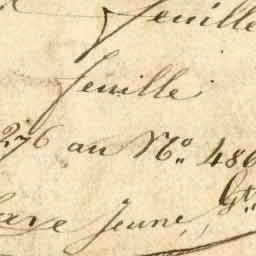 feuille
feuille
276 au No. 486
Jeune, Gt.